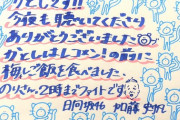 かとしです!!
今夜も聴いてくださり
ありがとうございました
かとしはレコメン!の前に
梅しご飯を食べました。
のりさん、2時までファイトです
日向坂46 加藤史帆